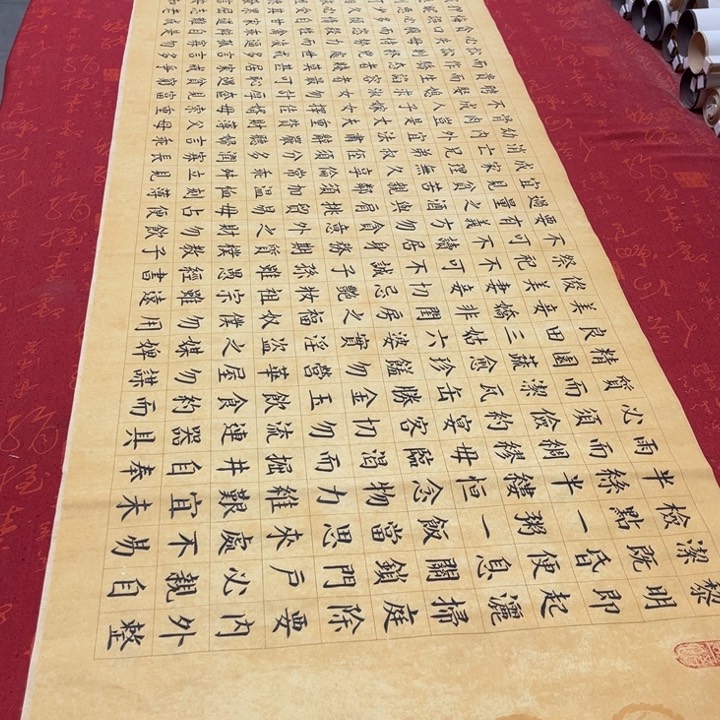 黎明即起灑掃庭除要內外整
潔既昏便息關鎖門戶必親自
檢點一粥一飯當思來處不易
半絲半縷恒念物力維艱宜未
雨而綢繆毋臨渴而掘井自奉
必須儉約宴客切勿流連器具
質而潔瓦缶勝金玉飲食約而
精園蔬愈珍饈勿營華屋勿謀
良田三姑六婆實淫盜之媒婢
美妾嬌非閨房之福奴僕勿用
俊美妻妾切忌艷妝祖宗雖遠
祭祀不可不誠子孫雖愚經書
不可不讀居身務期質樸教子
要有義方勿貪意外之財勿飲
過量之酒與肩挑貿易勿占便
宜見貧苦親鄰須加溫恤刻薄
成家理無久享倫常乖舛立見
消亡兄弟叔侄須分多潤寡長
幼內外宜法肅辭嚴聽婦言乖
骨肉豈是丈夫重資財薄父母
不成人子嫁女擇佳婿毋索重
聘娶媳求淑女勿計厚奩見富
貴而生諂容者最可恥遇貧窮